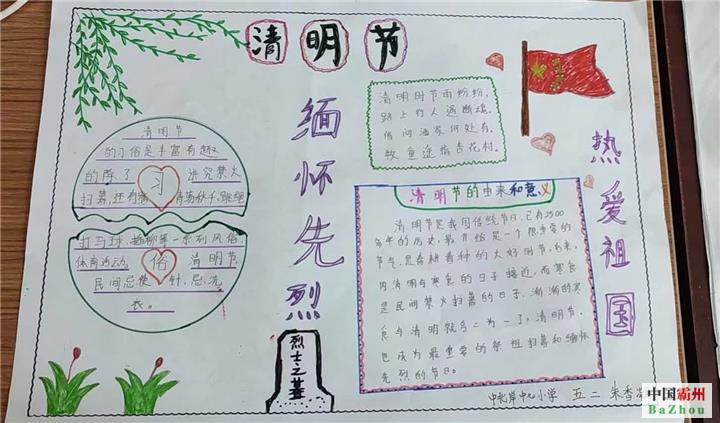 清明节
缅怀先烈
清明时节雨纷纷,
路上行人
借问酒家何处有,
牧童遥指杏花村。
热爱祖国
清明节
的习俗是丰富有趣
的除了 讲究禁火
扫墓,还有 荡秋千,踢
习
打马球, 一系列风俗
体育活动。 清明节,
民间忌使 针,忌洗
衣。
俗
清明节的由来和意义
清明节是我国传统节日,已有2500
多年的历史,最开始是一个很重要的
节气,是春耕春种的大好时节,后来,
因清明与寒食的日子接近,而寒食
是民间禁火扫墓的日子,渐渐的寒
食与清明就合二为一了,清明节,
也成为最重要的祭祖扫墓和缅怀
先烈的节日。
烈士之墓
小学 五二 朱
中国霸州
BaZhou